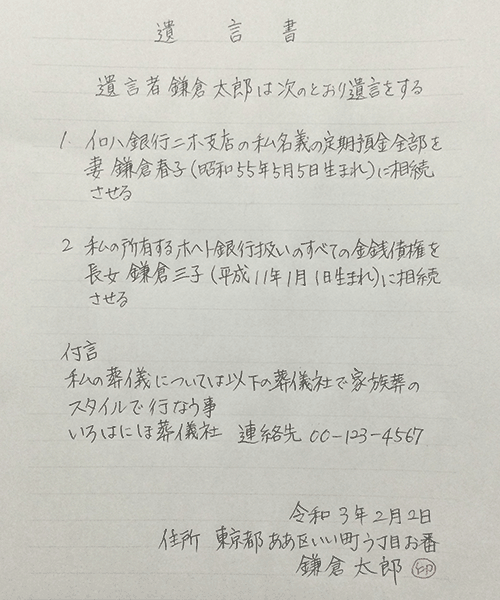 遺言書
遺言者鎌倉太郎は次のとおり遺言をする
1 イロハ銀行ニホ支店の私名義の定期預金全部を
妻 鎌倉春子(昭和55年5月5日生まれ)に相続
させる
2 私の所有するホヘト銀行扱いのすべての金銭債権を
長女 鎌倉三子(平成11年1月1日生まれ)に相続
させる
付言
私の葬儀については以下の葬儀社で家族葬の
スタイルで行なう事
いろはにほ葬儀社 連絡先 00-123-4567
令和3年2月2日
住所 東京都ああ区いい町う丁目お番
鎌倉太郎 印